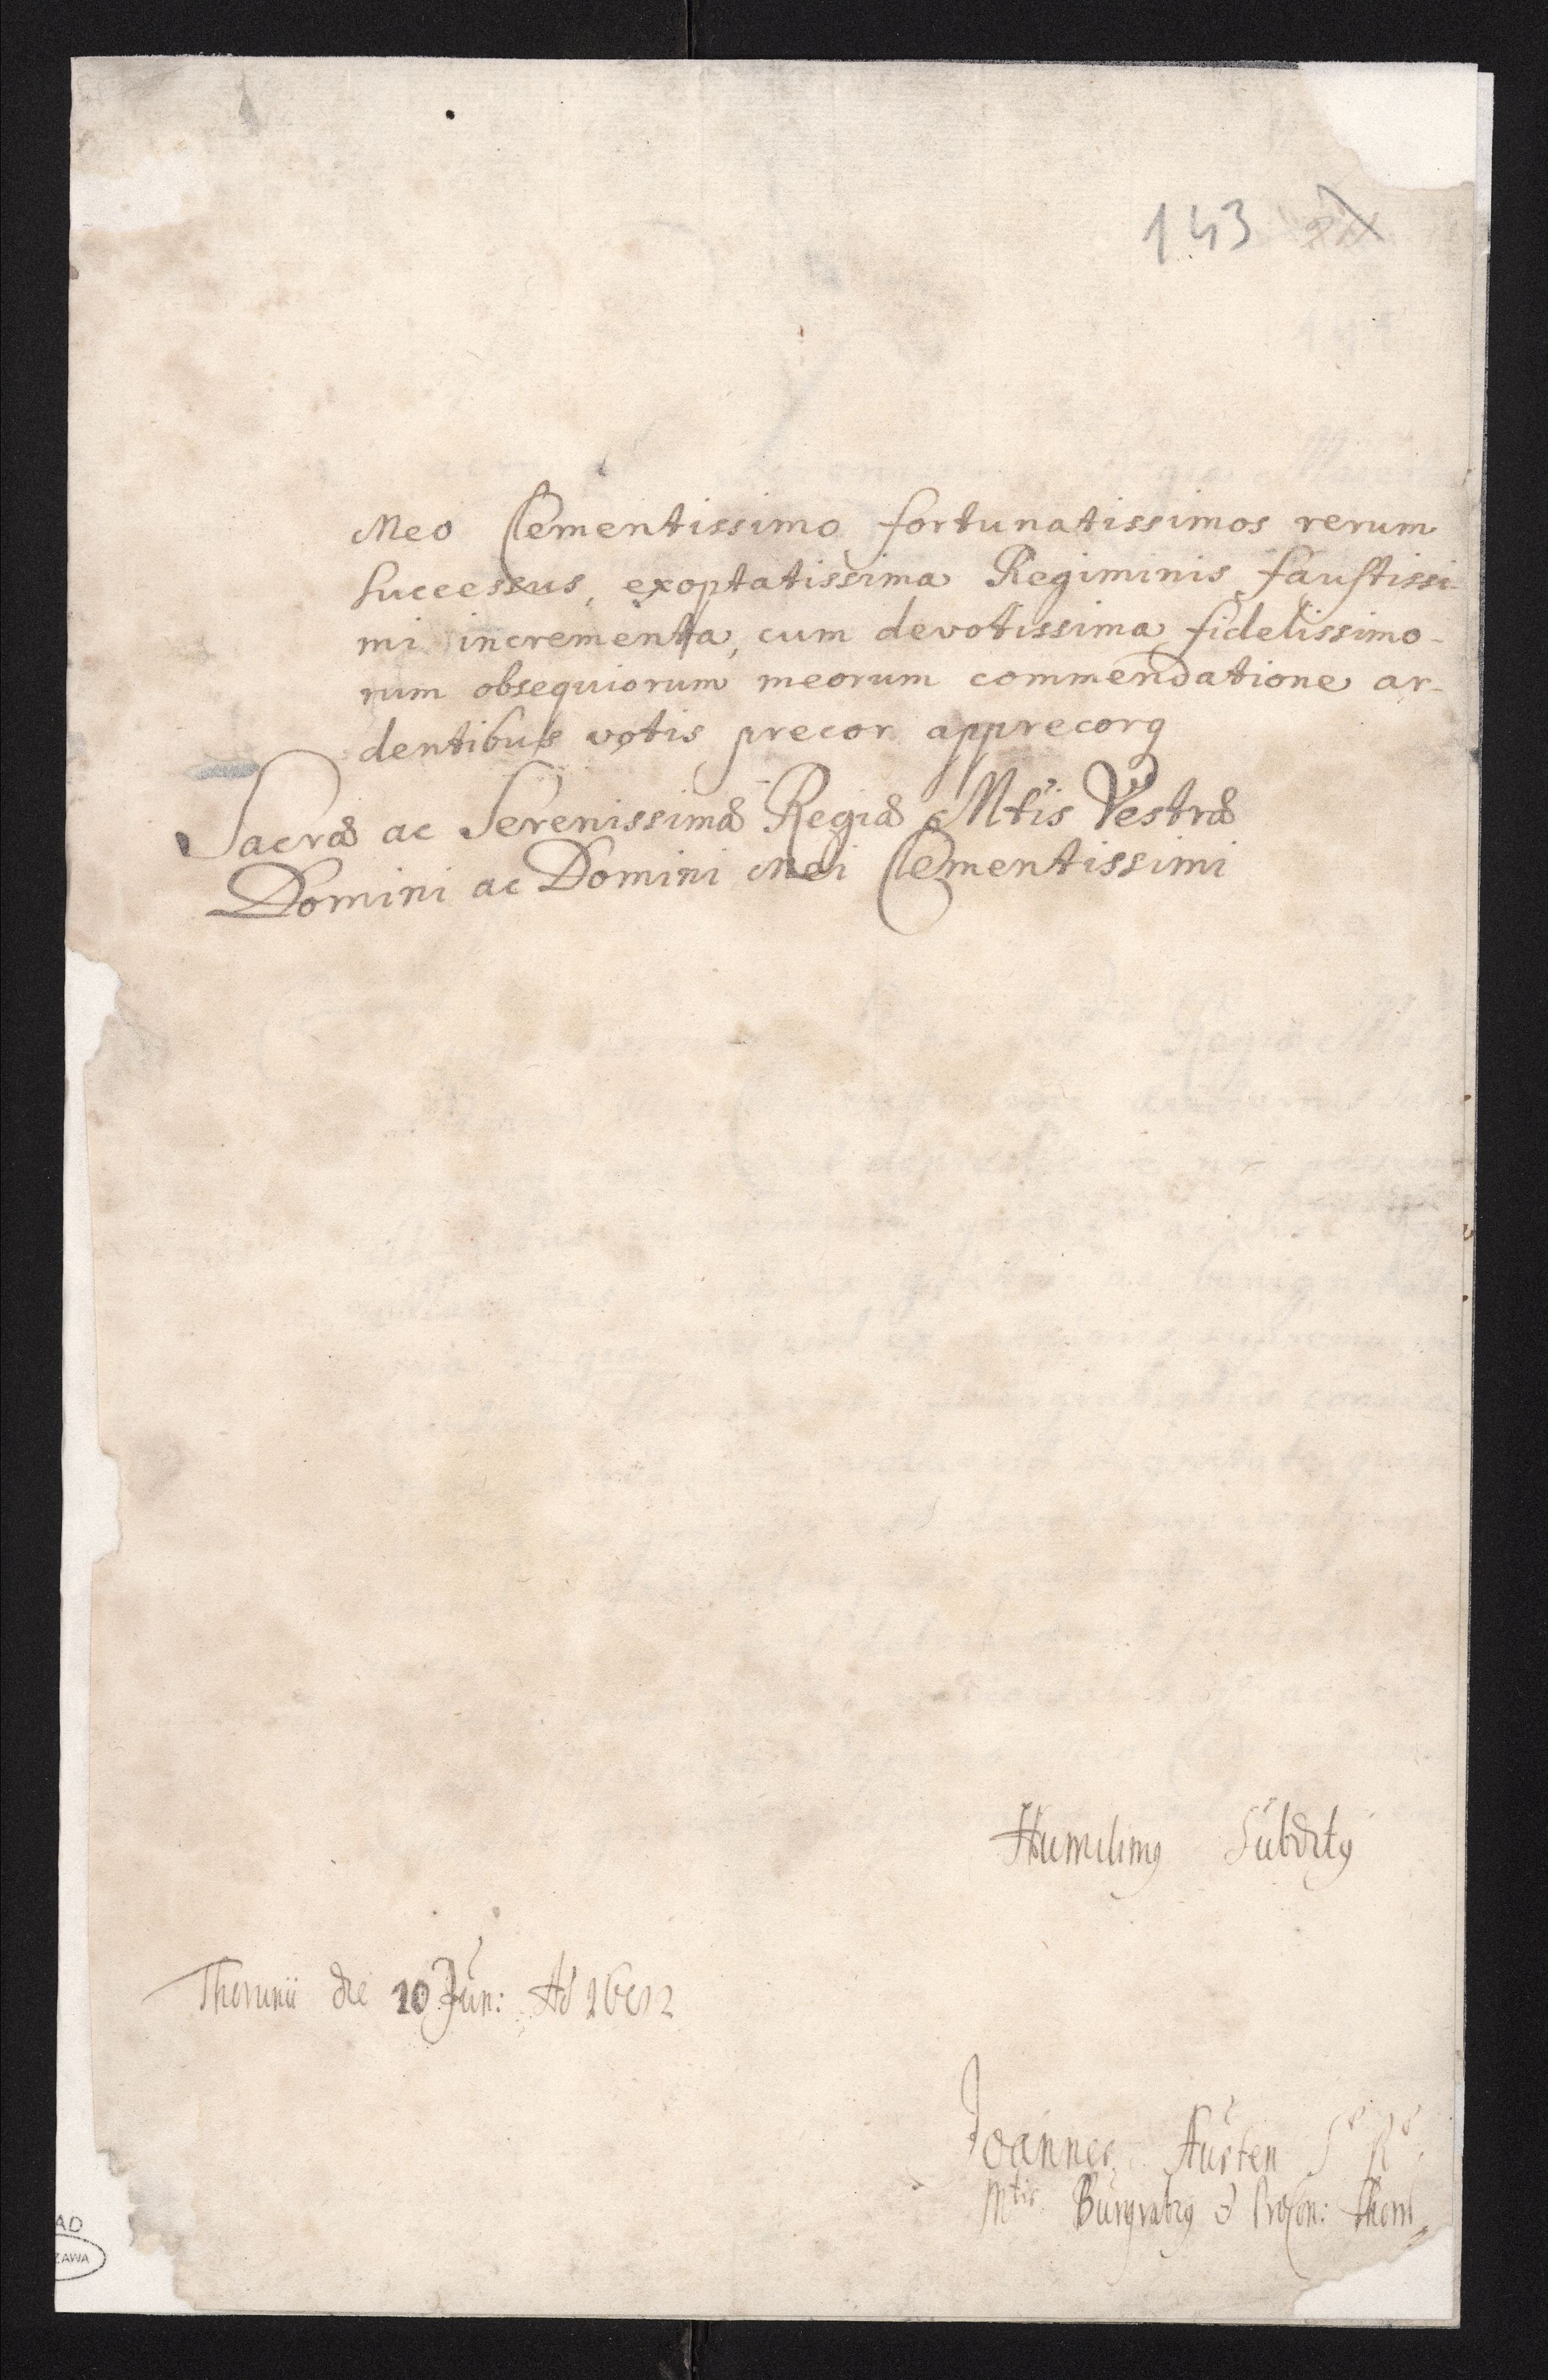 143
Meo Clementissimo fortunatissimos rerum
successus, exoptatissima Regiminis faustissi-
mi incrementa, cum devotissima fidelissimo-
rum obsequiorum meorum commendatione ar-
dentibus votis precor apprecorq
Sacræ ac Serenissimæ Regiæ Mtis Vestræ
Domini ac Domini Mei Clementissimi
Humilimus Subditus
Thorunii die 10 Jun: Aô
Joannes Austen S R
Mtis Burgrabius & Thor
AD
ZAWA